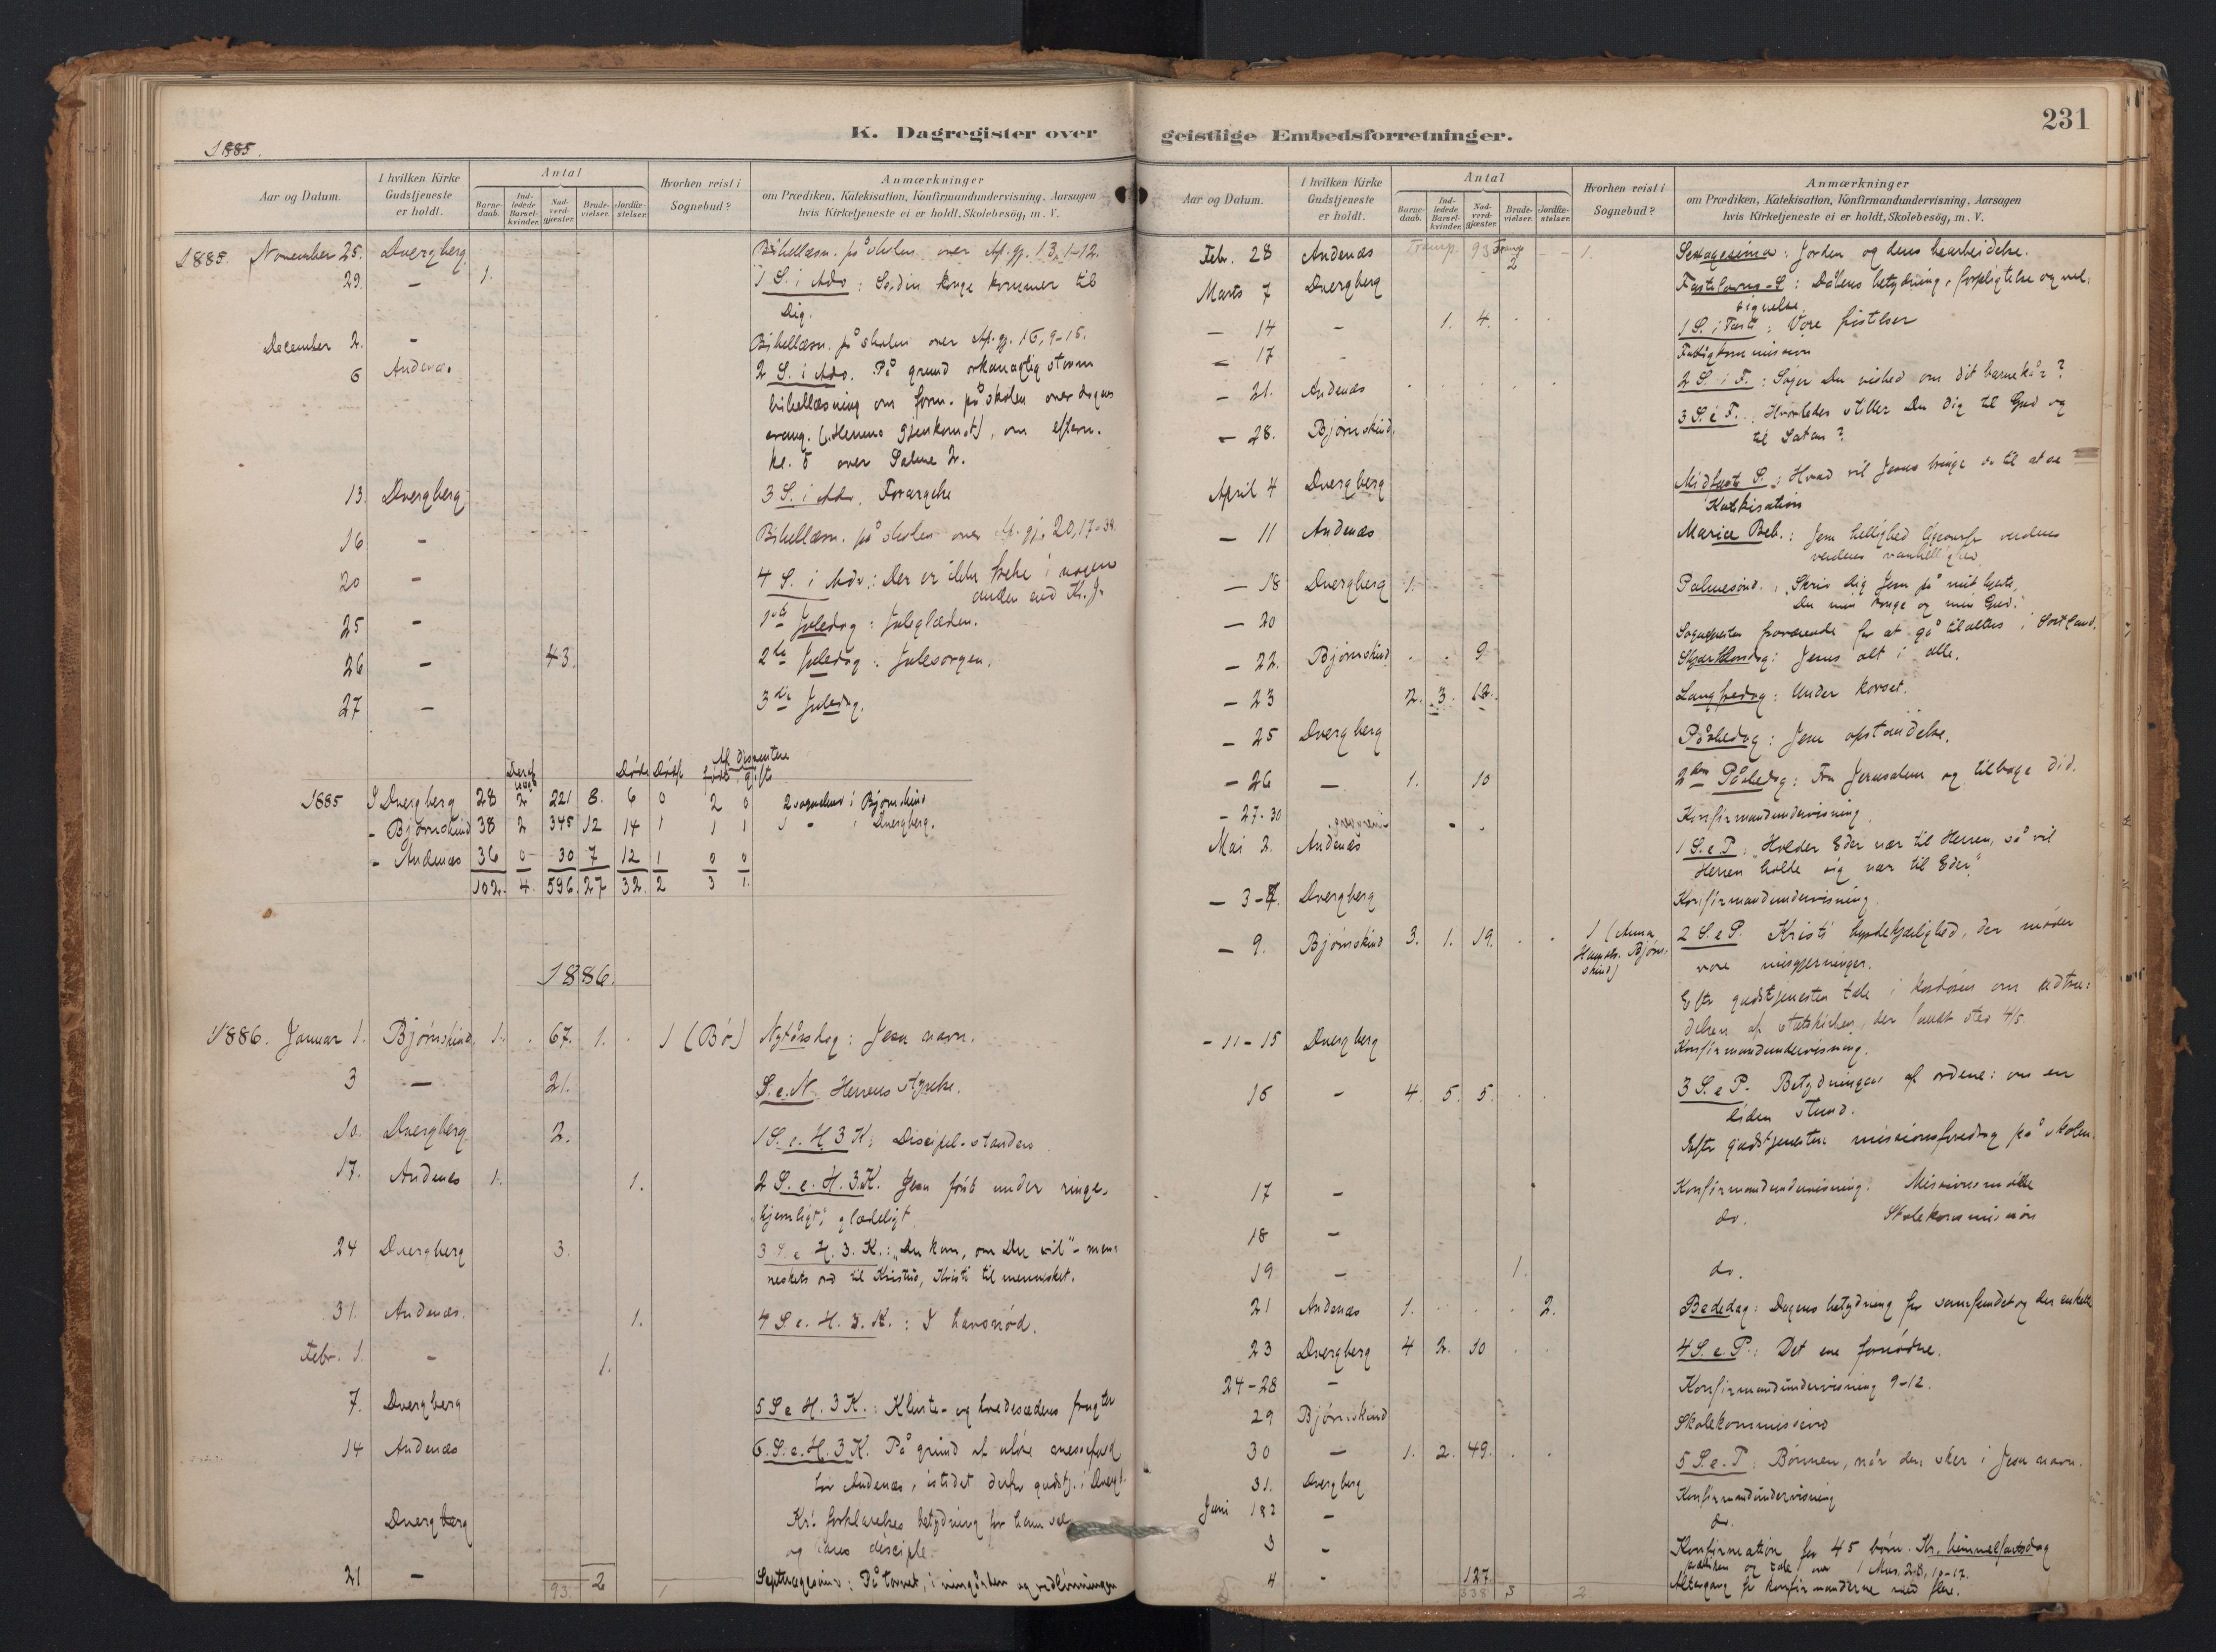 231
1885.
K. Dagregister over
Aar og Datum.
I hvilken Kirke Gudstjeneste er holdt.
Antal
Barne-daab.
Ind-ledede Barsel-kvinder.
Nad-verd-gjæster.
Brude-vielser.
Jordfæ-stelser.
Hvorhen reist i Sognebud?
Anmærkninger
om Prædiken, Katekisation, Konfirmandundervisning, Aarsagen
hvis Kirketjeneste ei er holdt, Skolebesøg, m. V.
1885. November 25. Dvergberg Bibellæsn. på skolen over Ap. gj. 13, 1-12.
29. — 1. 1 S. i Adv: Se, din konge kommer til
Dig.
December 2. — Bibellæsn. på skolen over Ap. gj. 16, 9-15.
6 Andenæs 2 S. i Adv. På grund orkanagtig storm
bibellæsning om form. på skolen over dagens
evang. (Herrens gjenkomst), om efterm.
kl. 5 over Salme 2.
13. Dvergberg 3 S. i Adv. Forargelse
16 — Bibellæsn. på skolen over Ap. gj. 20, 17-38.
20 — 4 S. i Adv: Der er ikke frelse i nogen
anden end Kr. J.
25 — 1ste Juledag: Juleglæden.
26 — 43. 2den Juledag: Julesorgen.
27 — 3die Juledag.
Deraf Døde Dødf. Af dissentere
født gifte
1885 I Dvergberg 28 2 221 8. 6 0 2 0 2 sognebud i Bjørnskind
- Bjørnskind 38 2 345 12 14 1 1 1 1 - i Dvergberg.
- Andenæs 36 0 30 7 12 1 0 0
102. 4. 596. 27 32. 2 3 1.
1886.
1886. Januar 1. Bjørnskind 1. 67. 1. 1 (Bø) Nytårsdag: Jesu navn.
3 — 21. S. e. N. Herrens styrelse.
10. Dvergberg 2. 1 S. e. H 3 K: Discipel-standen
17. Andenæs 1. 1. 2 S. e. H. 3 K. Jesu først under ringe,
hjemligt, glædeligt
24 Dvergberg 3. 3 S. e H. 3. K.: "Du kan, om Du vil" - men-
neskets ord til Kristus, Kristi til mennesket.
31. Andenæs. 1. 4 S. e. H. 3. K.: I havsnød.
Febr. 1. — 1.
7. Dvergberg 5 S e H. 3 K.: Klinte- og hvedesædens frugter
14 Andenæs 6. S. e. H. 3 K. På grund af uføre
for Andenæs, istedet derfor gudstj. i Dvergb.
Dvergberg Kr. forklarelses betydning for ham selv
og hans disciple.
21 — 93. 2 1 Septuagesima: På torvet, i vingården og ved lønningen

geistlige Embedsforretninger.
Aar og Datum.
I hvilken Kirke Gudstjeneste er holdt.
Antal
Barne-daab.
Ind-ledede Barsel-kvinder.
Nad-verd-gjæster.
Brude-vielser.
Jordfæ-stelser.
Hvorhen reist i Sognebud?
Anmærkninger
om Prædiken, Katekisation, Konfirmandundervisning, Aarsagen
hvis Kirketjeneste ei er holdt, Skolebesøg, m. V.
Febr. 28 Andenæs Transp. 93 Transp 2 1. Sexagesima: Jorden og dens bearbeidelse.
Marts 7 Dvergberg Fastelavns-S: Dåbens betydning, forpligtelse og vel-
signelse.
— 14 — 1. 4. 1 S. i Faste: Vore fristelser
— 17 — Fattigkommission
— 21. Andenæs 2 S. i F.: Søger Du vished om dit barnekår?
— 28. Bjørnskind. 3 S. i F. Hvorledes stiller Du dig til Gud og
til Satan?
April 4 Dvergberg Midfaste S.: Hvad vil Jesus bringe os til at se
Katekisation
— 11 Andenæs Mariæ Beb.: Jesu hellighed ligeoverfor verdens
verdens vanhellighed
— 18 Dvergberg 1. Palmesønd.: "Skriv dig Jesu på mit hjerte,
Du min konge og min Gud."
— 20 Sognepresten fraværende for at gå til alters i Sortland.
— 22. Bjørnskind 9 Skjærtorsdag: Jesus alt i alle.
— 23 2. 3. 12. Langfredag: Under korset.
— 25 Dvergberg Påskedag: Jesu opstandelse.
— 26 — 1. 10 2den Påskedag: Fra Jerusalem og tilbage did.
— 27-30 Konfirmandundervisning
Mai 2. Andenæs 1 S. e P: "Holder Eder nær til Herren, så vil
Herren holde sig nær til Eder."
— 3-7. Dvergberg Konfirmandundervisning.
— 9. Bjørnskind 3. 1. 19. 1 (Anna Bjørn-
skind) 2 S. e P. Kristi hyrdekjærlighed, der møder
vore misgjerninger.
Efter gudstjenesten tale i kordøren om udtræ-
delsen af statskirken, der fandt sted 4/5.
- 11-15 Dvergberg Konfirmandundervisning.
16 — 4. 5. 5. 3 S. e P. Betydningen af ordene: om en
liden stund.
Efter gudstjenesten missionsforedrag på skolen.
17 — Konfirmandundervisning. Missionsmøde
18 — do. Skolekommission
19 — 1. do.
21 Andenæs 1. 2. Bededag: Dagens betydning for samfundet og den enkelte
23 Dvergberg 4 2. 10 4 S. e. P.: Det ene fornødne.
24-28 — Konfirmandundervisning 9-12.
29 Bjørnskind Skolekommission
30 — 1. 2. 49. 5 S. e. P: Bønnen, når den sker i Jesu navn.
31. Dvergberg Konfirmandundervisning
Juni 1&2 — do.
3 — Konfirmation for 45 børn. Kr. himmelfartsdag
prædiken og tale over 1 Mos. 28, 10-17.
4 — 127. 338 3 2 Altergang for konfirmanderne med flere.